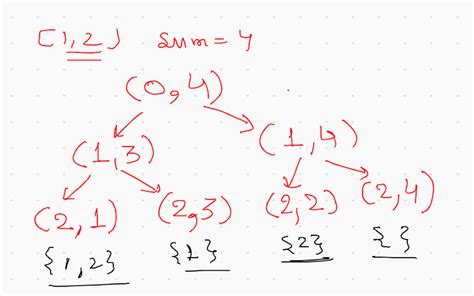 [1,2] sum = 4
(0,4)
(1,3) (1,4)
(2,1) (2,3) (2,2) (2,4)
{1,2} {1} {2} { }